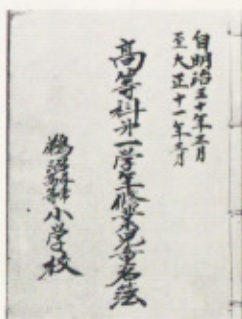 自明治 十年三月
至大正十一年三月
高等科㐧一学年修業児童名
小学校